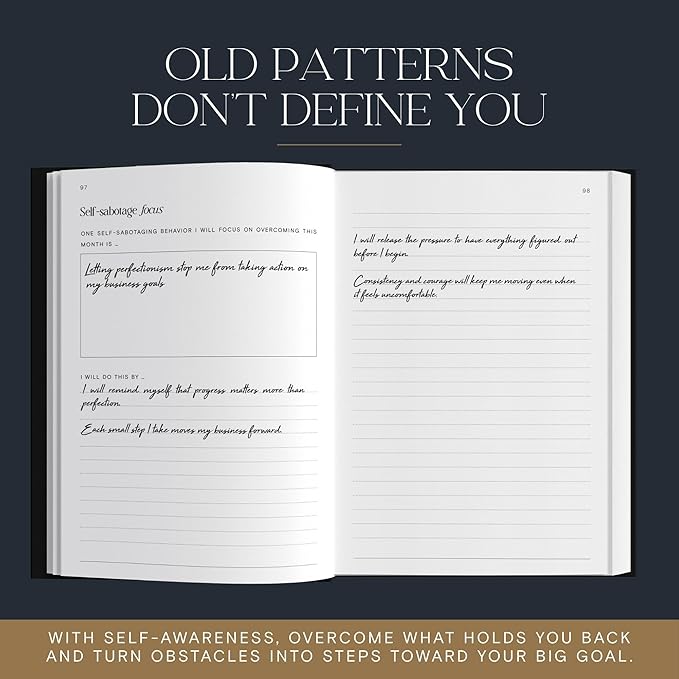 OLD PATTERNS
DON'T DEFINE YOU
97
Self-sabotage focus
ONE SELF-SABOTAGING BEHAVIOR I WILL FOCUS ON OVERCOMING THIS
MONTH IS ...
Letting perfectionism stop me from taking action on
my business goals
I WILL DO THIS BY ...
I will remind myself that progress matters more than
perfection.
Each small step I take moves my business forward.
98
I will release the pressure to have everything figured out
before I begin.
Consistency and courage will keep me moving even when
it feels uncomfortable.
WITH SELF-AWARENESS, OVERCOME WHAT HOLDS YOU BACK
AND TURN OBSTACLES INTO STEPS TOWARD YOUR BIG GOAL.